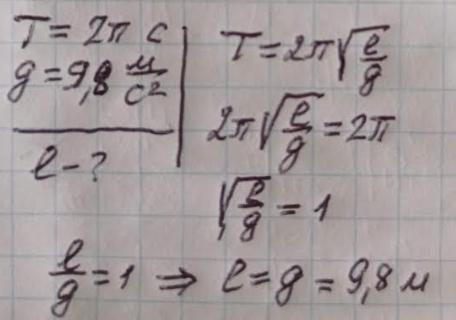 T = 2π с
g = 9,8 м/с²
l - ?
T = 2π√(l/g)
2π√(l/g) = 2π
√(l/g) = 1
l/g = 1 ⇒ l = g = 9,8 м